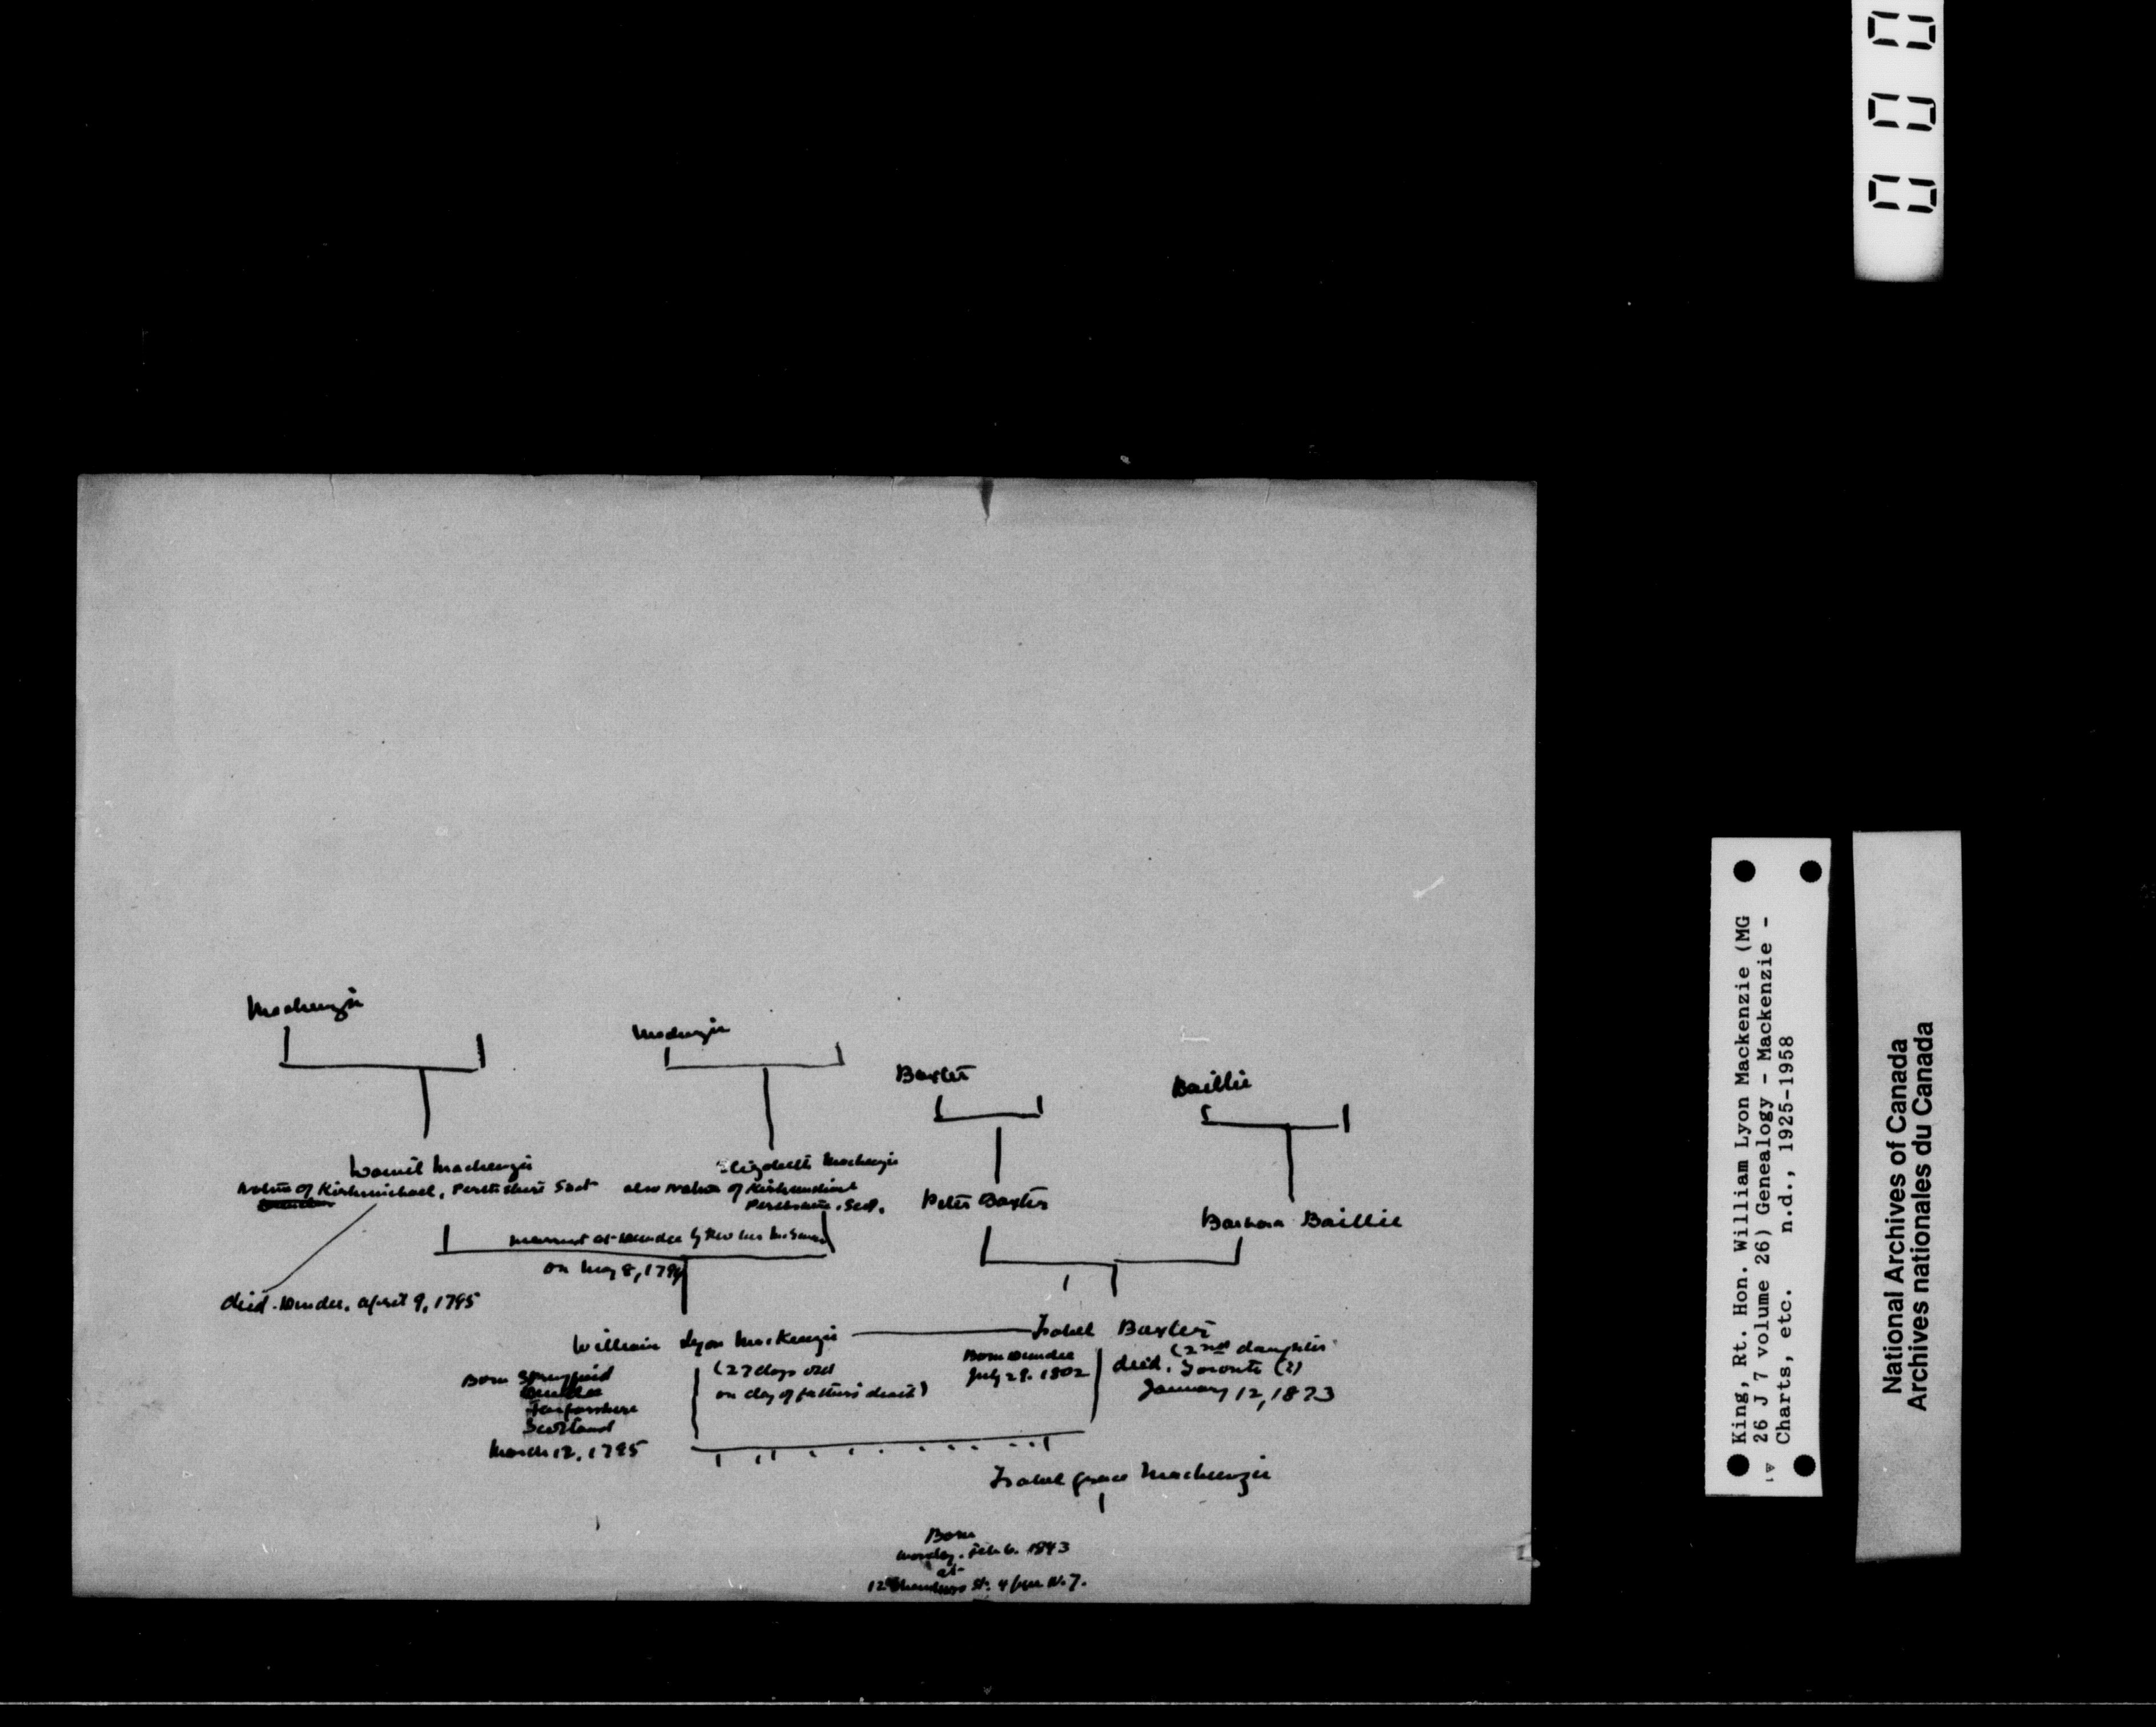 Mackenzie
Mackenzie
Baxter
Baillie
Daniel Mackenzie
Native of Kirkmichael, Perthshire Scot
Elizabeth Mackenzie
also Native of Kirkmichael
Perthshire, Scot.
Peter Baxter
Barbara Baillie
married at Dundee by Rev
on May 8, 1794
died. Dundee, April 9, 1795
William Lyon MacKenzie
Isabel Baxter
(2nd daughter
Born Springfield
Dundee
Forfarshire
Scotland
March 12, 1795
(27 days old
on day of father's death)
Born Dundee
July 29. 1802
died. Toronto (?)
January 12, 1873
Isabel Grace Mackenzie
Born
Monday. Feb 6. 1843
at
St. N.Y.
King, Rt. Hon. William Lyon Mackenzie (MG
26 J 7 volume 26) Genealogy - Mackenzie -
Charts, etc. n.d., 1925-1958
National Archives of Canada
Archives nationales du Canada